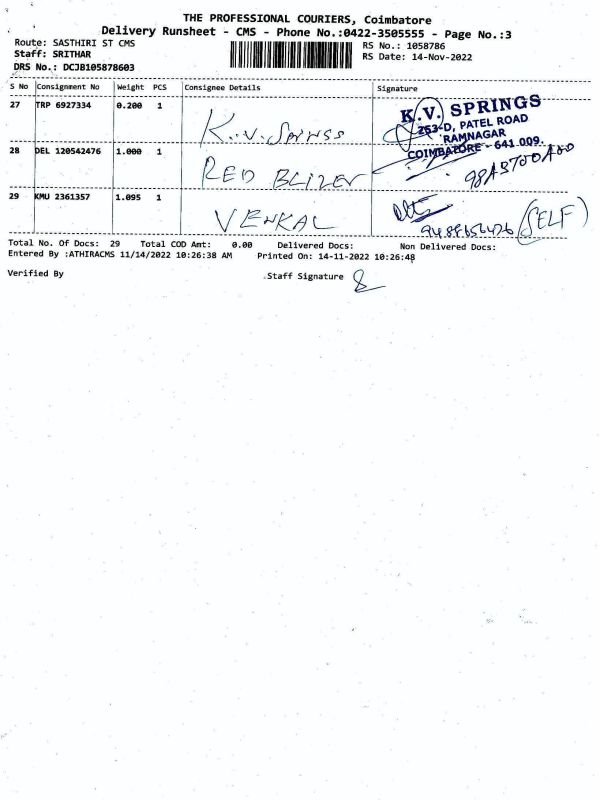 THE PROFESSIONAL COURIERS, Coimbatore
Delivery Runsheet - CMS - Phone No.:0422-3505555 - Page No.:3
Route: SASTHIRI ST CMS
Staff: SRITHAR
DRS No.: DCJB105878603
RS No.: 1058786
RS Date: 14-Nov-2022
S No Consignment No Weight PCS Consignee Details Signature
27 TRP 6927334 0.200 1 K.V. SPRINGS
K.V. SPRINGS
253-D, PATEL ROAD
RAMNAGAR
COIMBATORE - 641 009.
28 DEL 120542476 1.000 1 RED BLIZER
29 KMU 2361357 1.095 1 VENKAL
(SELF)
Total No. Of Docs: 29 Total COD Amt: 0.00 Delivered Docs: Non Delivered Docs:
Entered By :ATHIRACMS 11/14/2022 10:26:38 AM Printed On: 14-11-2022 10:26:48
Verified By Staff Signature